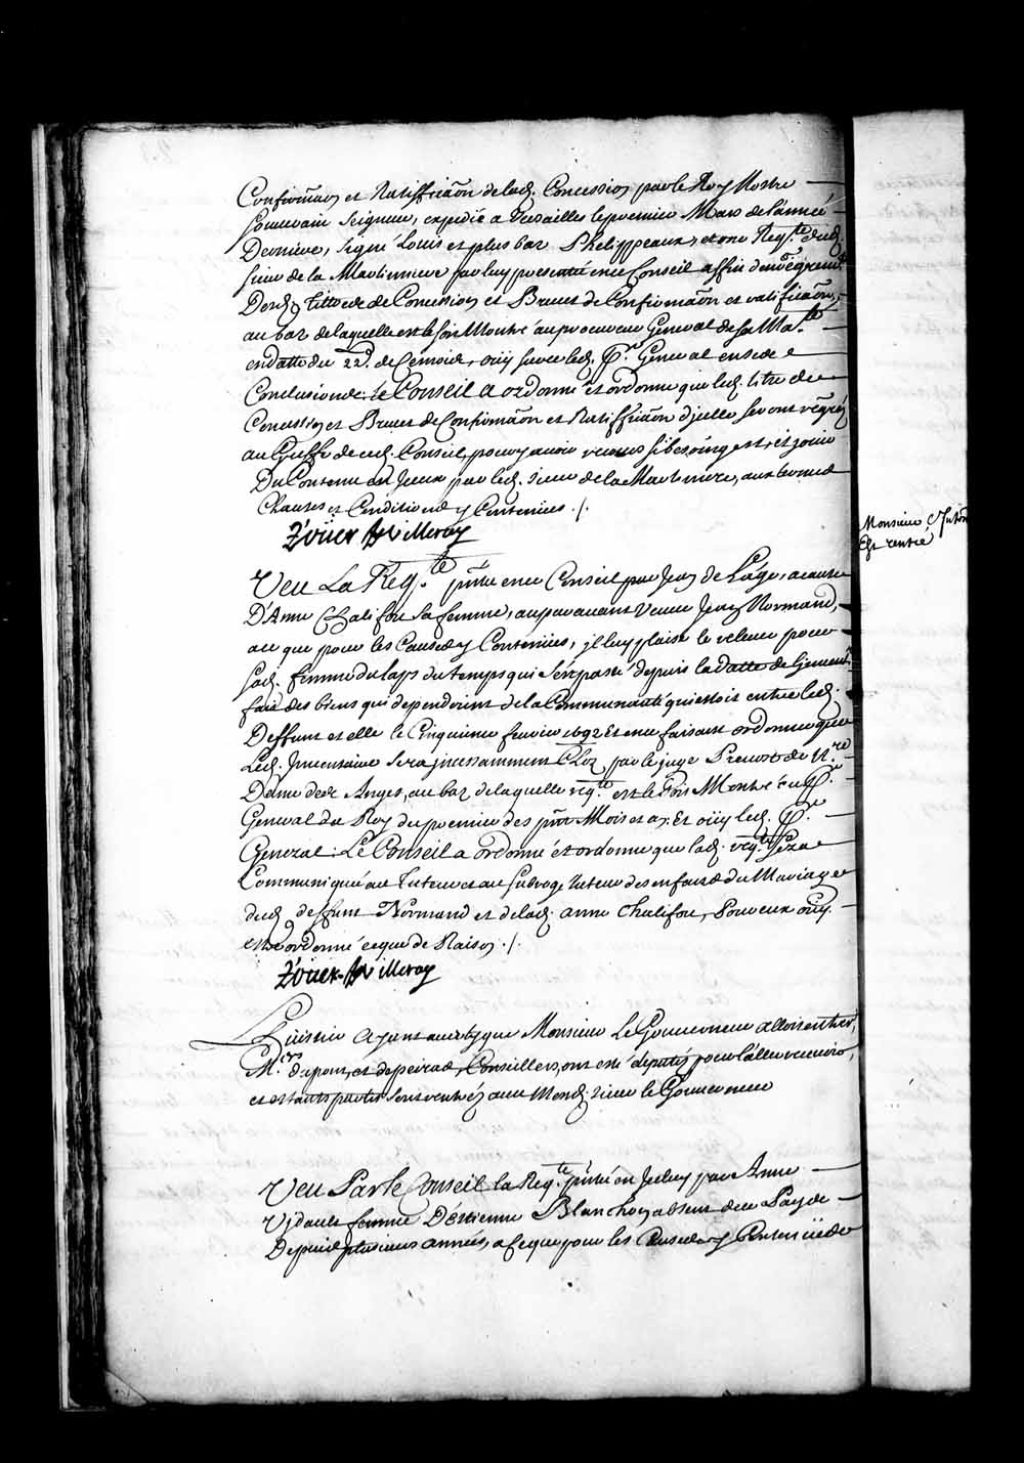 Confirmaõn et Ratiffičaõn de lad. Concession par le Roy Nostre
Souverain Seigneur, expedié a Versailles le premier Mars de l'année
Derniere, Signé Louis et plus bas Phelippeaux, et une Reqte. dud.
Sieur de la Martiniere par luy presentée en ce Conseil affin d'enregrement
Desd. tittre de Concession et Brevet de Confirmaõn et ratificaõn,
au bas de laquelle est le soit Monstré au procureur General de sa Mate.
en datte du 22d. de ce mois, ouy sur ce led. Pr. General en ses
Conclusions. Le Conseil a ordonné et ordonne que led. titre de
Concession et Brevet de Confirmaõn et Ratifficaõn d'jcelle seront regrez
au Greffe de ced. Conseil, pour y avoir recours si besoing est, et jouir
Du Contenu en jceux par led. Sieur de la Martiniere, aux termes
Clauses et Conditions y Contenües ./.
Roüer de Villeray
Veu La Reqte. pntée en ce Conseil par Jean de Lage, a cause
D'Anne Chalifou sa femme, auparavant Veuve Jean Normand,
a ce que pour les Causes y Contenües, jl luy plaise le relever pour
sad. femme du laps du temps qui s'est passé depuis la datte de
fait des biens qui dependoient de la Communauté qui estoit entre led.
Deffunt et elle le Cinquieme fevrier 1692 Et en ce faisant ordonner que
Led. Jnventaire sera jncessamment Clos par le juge Prevost de Nre
Dame des Anges, au bas de laquelle reqte. est le soit Monstré au Pr.
General du Roy du premier des pnt Mois et an. Et oüy led. Pr.
General: Le Conseil a ordonné et ordonne que lad. reqte. sera
Communiquée au Tuteur et au Subrogé tuteur des enfans du Mariage
dud. deffunt Normand et de lad. anne chalifou, Pour eux ouys
estre ordonné ce que de Raison ./.
Roüer de Villeray
L'huissier ayant averty que Monsieur Le Gouverneur alloit entrer,
Mrs. dupont, et depeiras, Conseillers, ont esté deputéz pour l'aller recevoir,
et estants partis sont rentréz avec Mond. Sieur le Gouverneur
Monsieur
Est rentré
Veu Par le Conseil la Reqte. pntée en Jceluy par Anne
Vidault femme D'Estienne Blanchon absent de ce Pays
Depuis plusieurs années, a ce que pour les Causes y Contenües